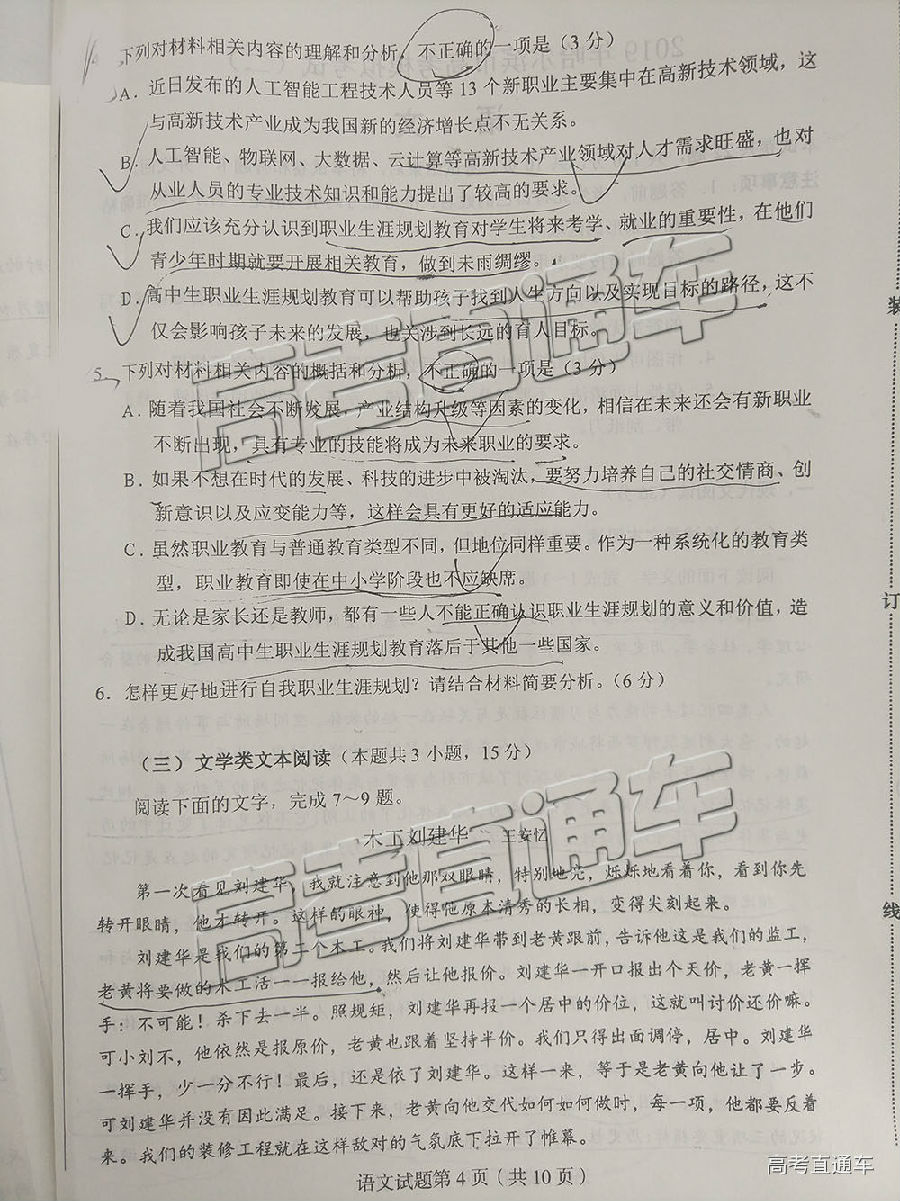 下列对材料相关内容的理解和分析，不正确的一项是（3 分）
A. 近日发布的人工智能工程技术人员等 13 个新职业主要集中在高新技术领域，这
与高新技术产业成为我国新的经济增长点不无关系。
B. 人工智能、物联网、大数据、云计算等高新技术产业领域对人才需求旺盛，也对
从业人员的专业技术知识和能力提出了较高的要求。
C. 我们应该充分认识到职业生涯规划教育对学生将来考学、就业的重要性，在他们
青少年时期就要开展相关教育，做到未雨绸缪。
D. 高中生职业生涯规划教育可以帮助孩子找到人生方向以及实现目标的路径，这不
仅会影响孩子未来的发展，也关涉到长远的育人目标。
5. 下列对材料相关内容的概括和分析，不正确的一项是（3 分）
A. 随着我国社会不断发展，产业结构升级等因素的变化，相信在未来还会有新职业
不断出现，具有专业的技能将成为未来职业的要求。
B. 如果不想在时代的发展、科技的进步中被淘汰，要努力培养自己的社交情商、创
新意识以及应变能力等，这样会具有更好的适应能力。
C. 虽然职业教育与普通教育类型不同，但地位同样重要。作为一种系统化的教育类
型，职业教育即使在中小学阶段也不应缺席。
D. 无论是家长还是教师，都有一些人不能正确认识职业生涯规划的意义和价值，造
成我国高中生职业生涯规划教育落后于其他一些国家。
6. 怎样更好地进行自我职业生涯规划？请结合材料简要分析。（6 分）
（三）文学类文本阅读（本题共 3 小题，15 分）
阅读下面的文字，完成 7～9 题。
木工刘建华 王安忆
第一次看见刘建华，我就注意到他那双眼睛，特别地亮，烁烁地看着你，看到你先
转开眼睛，他才转开。这样的眼神，使得他原本清秀的长相，变得尖刻起来。
刘建华是我们的第二个木工。我们将刘建华带到老黄跟前，告诉他这是我们的监工，
老黄将要做的木工活一一报给他，然后让他报价。刘建华一开口报出个天价，老黄一挥
手：不可能！杀下去一半。照规矩，刘建华再报一个居中的价位，这就叫讨价还价嘛。
可小刘不，他依然是报原价，老黄也跟着坚持半价。我们只得出面调停，居中。刘建华
一挥手，少一分不行！最后，还是依了刘建华。这样一来，等于是老黄向他让了一步。
可刘建华并没有因此满足。接下来，老黄向他交代如何如何做时，每一项，他都要反着
来。我们的装修工程就在这样敌对的气氛底下拉开了帷幕。
语文试题第 4 页（共 10 页）
装
订
线
高考直通车
高考直通车
高考直通车